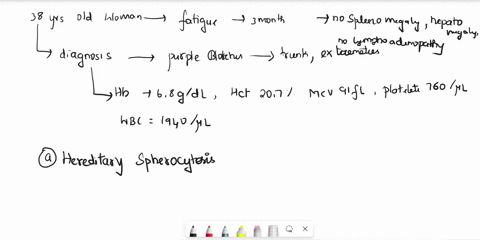 38 yrs old woman → fatigue → 3 month → no Spleno megaly, hepato megaly,
no lympho adenopathy
diagnosis → purple Blotches → trunk, extremeties
Hb → 6.8 g/dL, Hct 20.7 % Mcv 91 fL, platlate 760 /μL
WBC = 1940 /μL
a Hereditary Spherocytosis